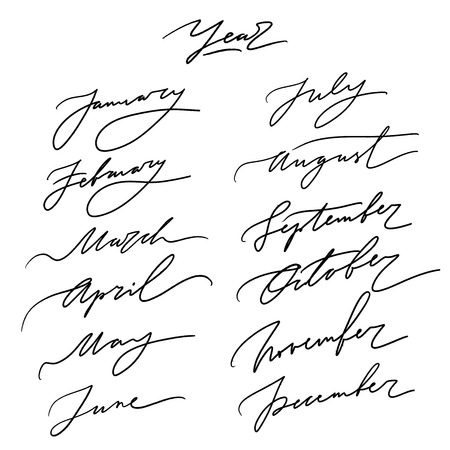 Year
January
February
March
April
May
June
July
August
September
October
November
December